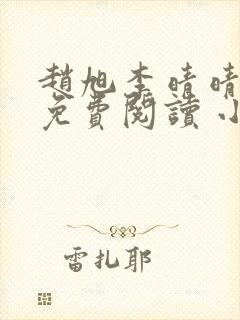 趙旭李晴晴
免費閱讀小
雷扎耶